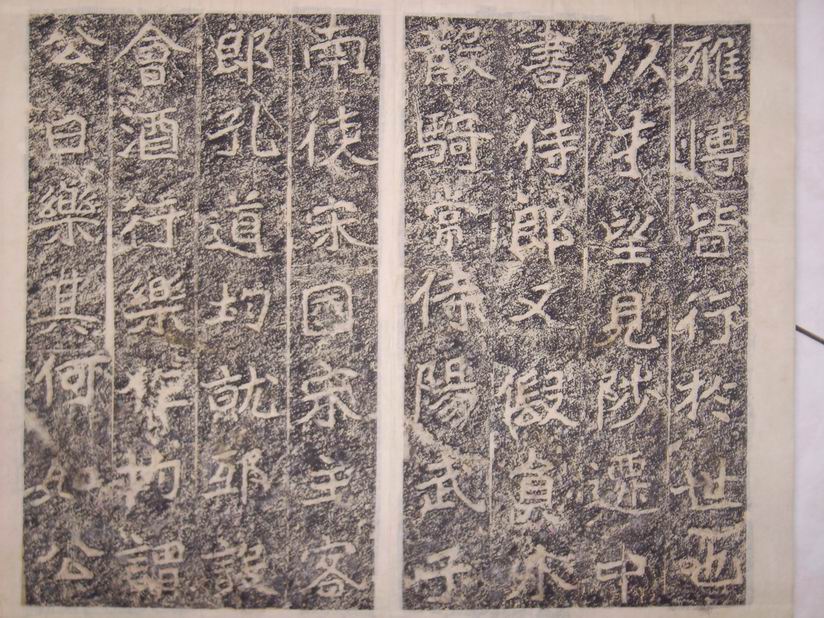 雅博皆行於世也
以才望見陟遷中
書侍郎又假員外
散騎常侍陽武子
南使宋國宋主客
郎孔道均就邸設
會酒行樂作均謂
公曰樂其何如公